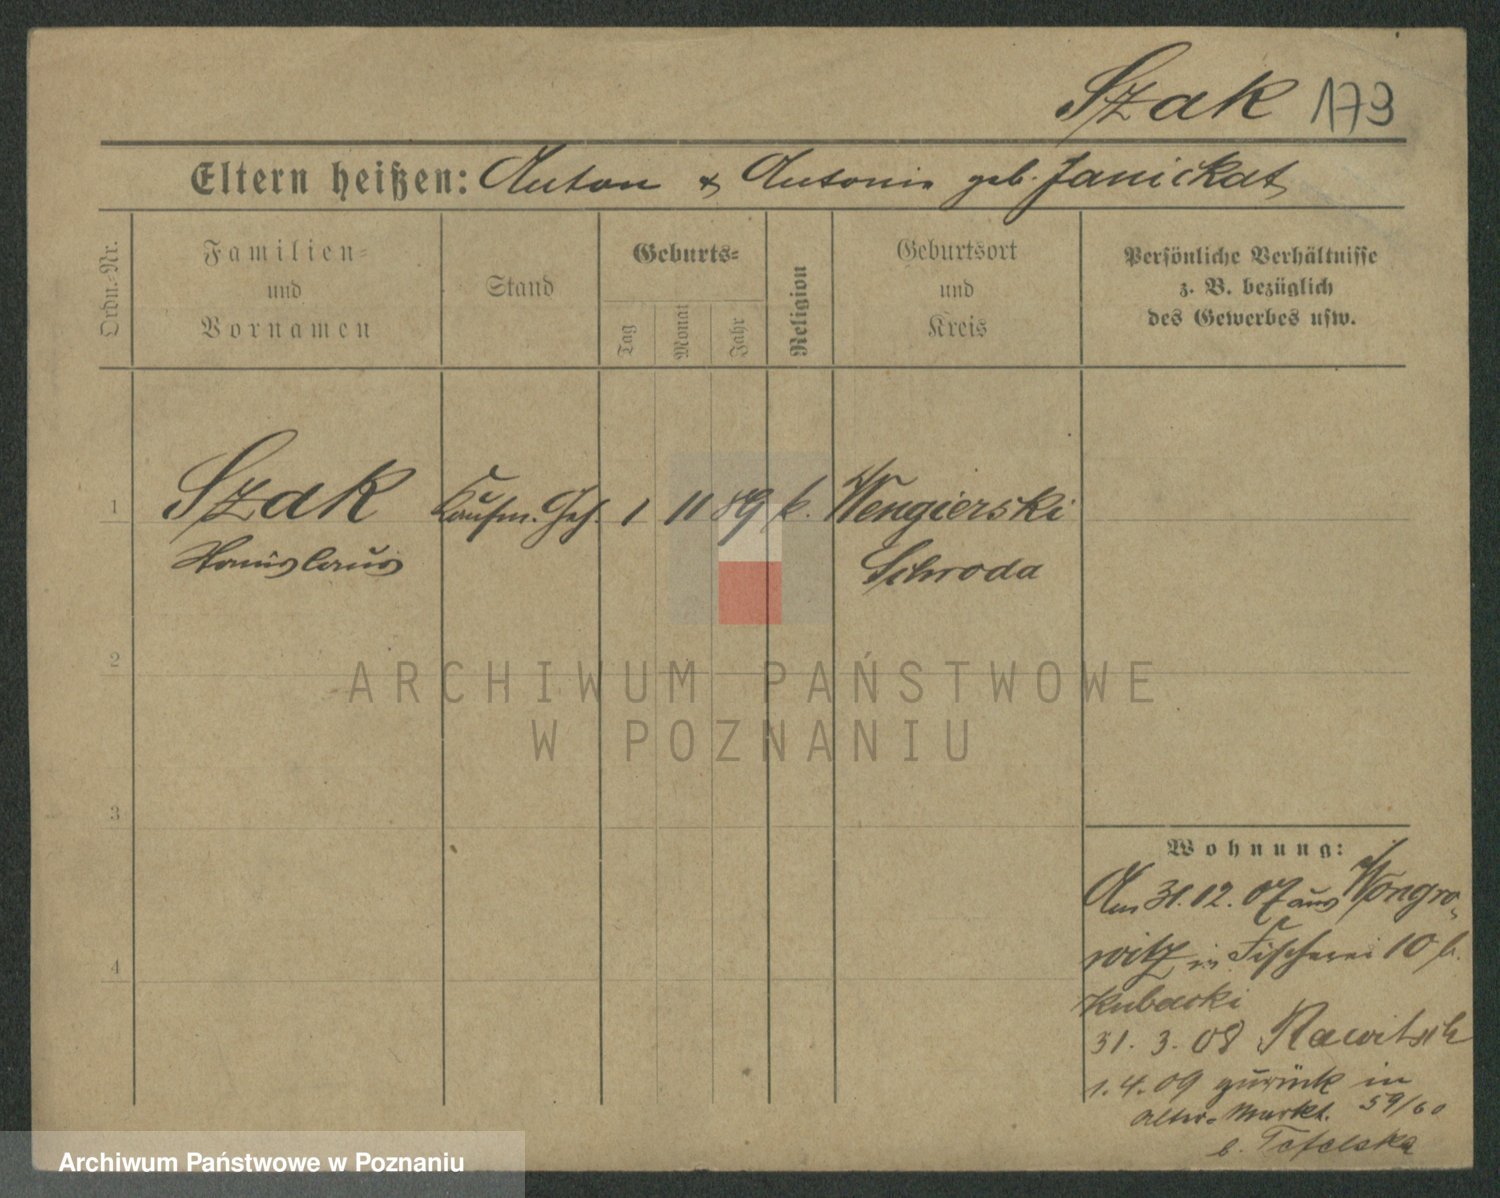 Szak 173
Eltern heißen: Anton & Antonie geb. Janickat
Ordn.-Nr.
Familien-
und
Vornamen
Stand
Geburts-
Tag
Monat
Jahr
Religion
Geburtsort
und
Kreis
Persönliche Verhältnisse
z. B. bezüglich
des Gewerbes usw.
1 Szak Kaufm. Geh. 1 11 89 k. Wengierski
Stanislaus Schroda
2
3
4
Wohnung:
Am 31.12.07 aus Wongro-
witz in Fischerei 10 b.
Kubacki
31. 3. 08 Rawitsch
1.4.09 zurück in
Alter Markt. 59/60
b.
ARCHIWUM PAŃSTWOWE
W POZNANIU
Archiwum Państwowe w Poznaniu